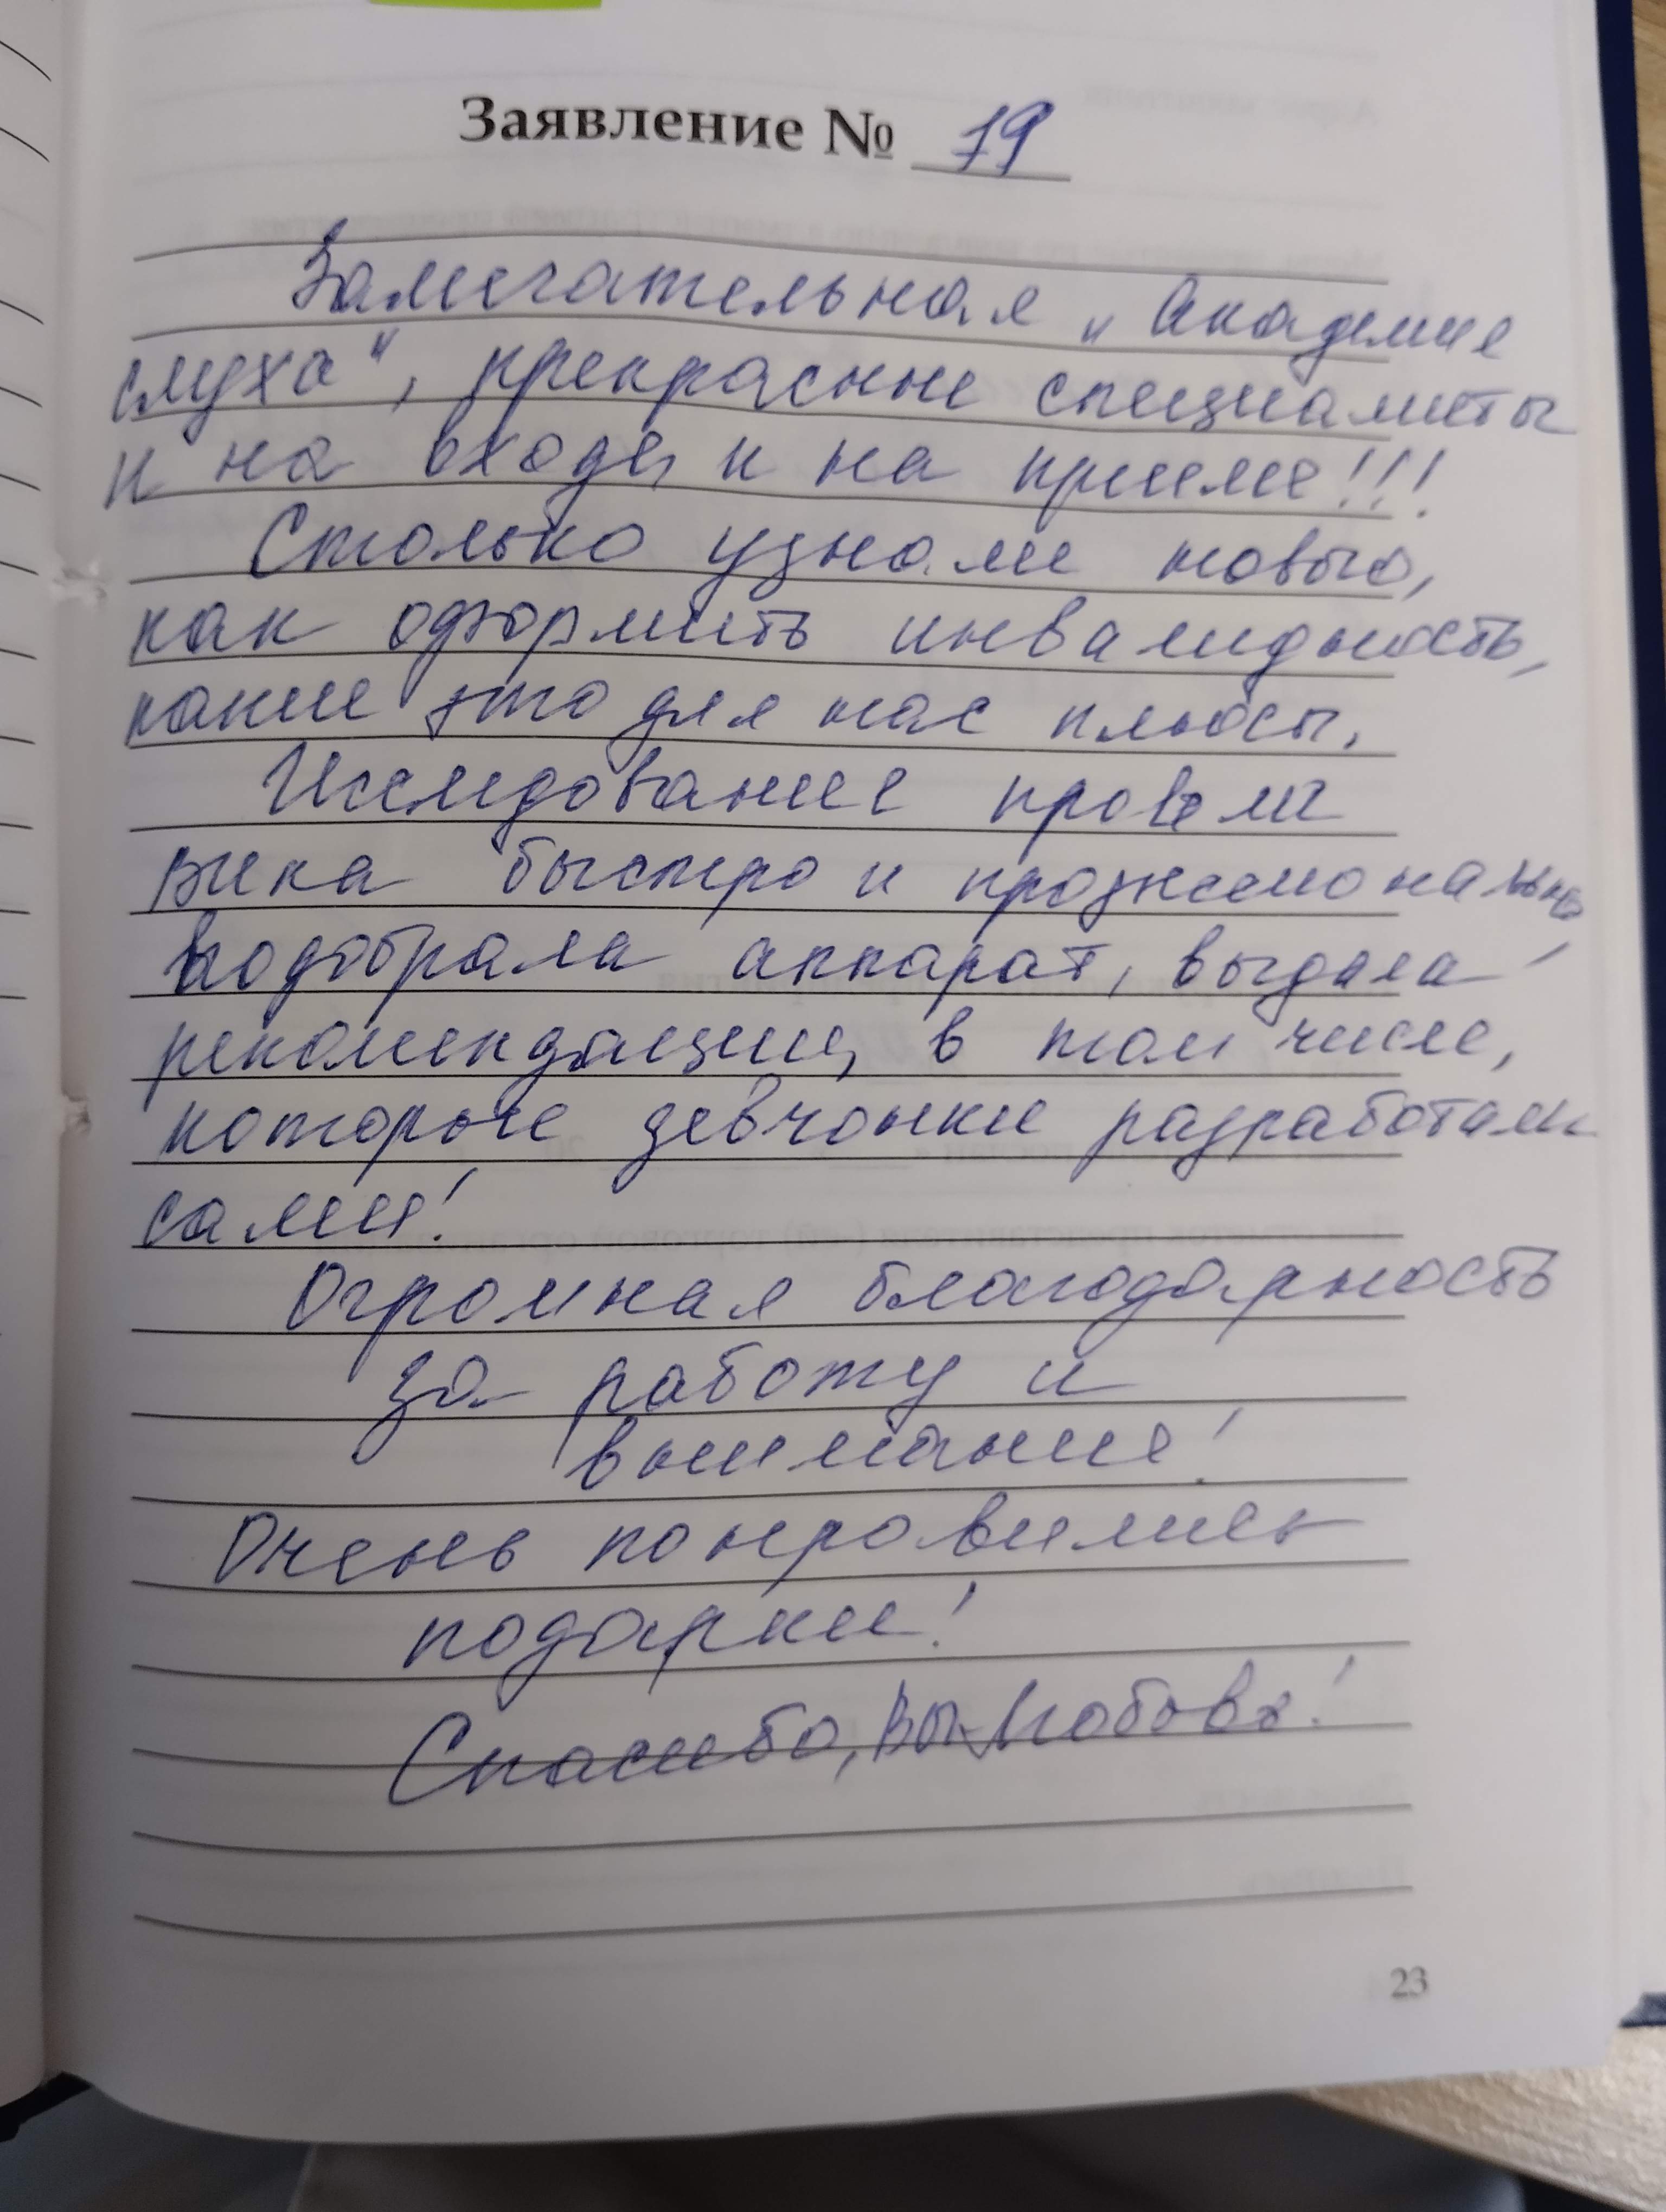 Заявление № 19
Замечательная „Академия
слуха", прекрасные специалисты
и на входе, и на приеме!!!
Столько узнали нового,
как оформить инвалидность,
какие это для нас плюсы.
Исследование провели
Вика быстро и профессионально
подобрала аппарат, выдала
рекомендации, в том числе,
которые девчонки разработали
сами!
Огромная благодарность
за работу и
внимание!
Очень понравились
подарки!
Спасибо, Вы
23